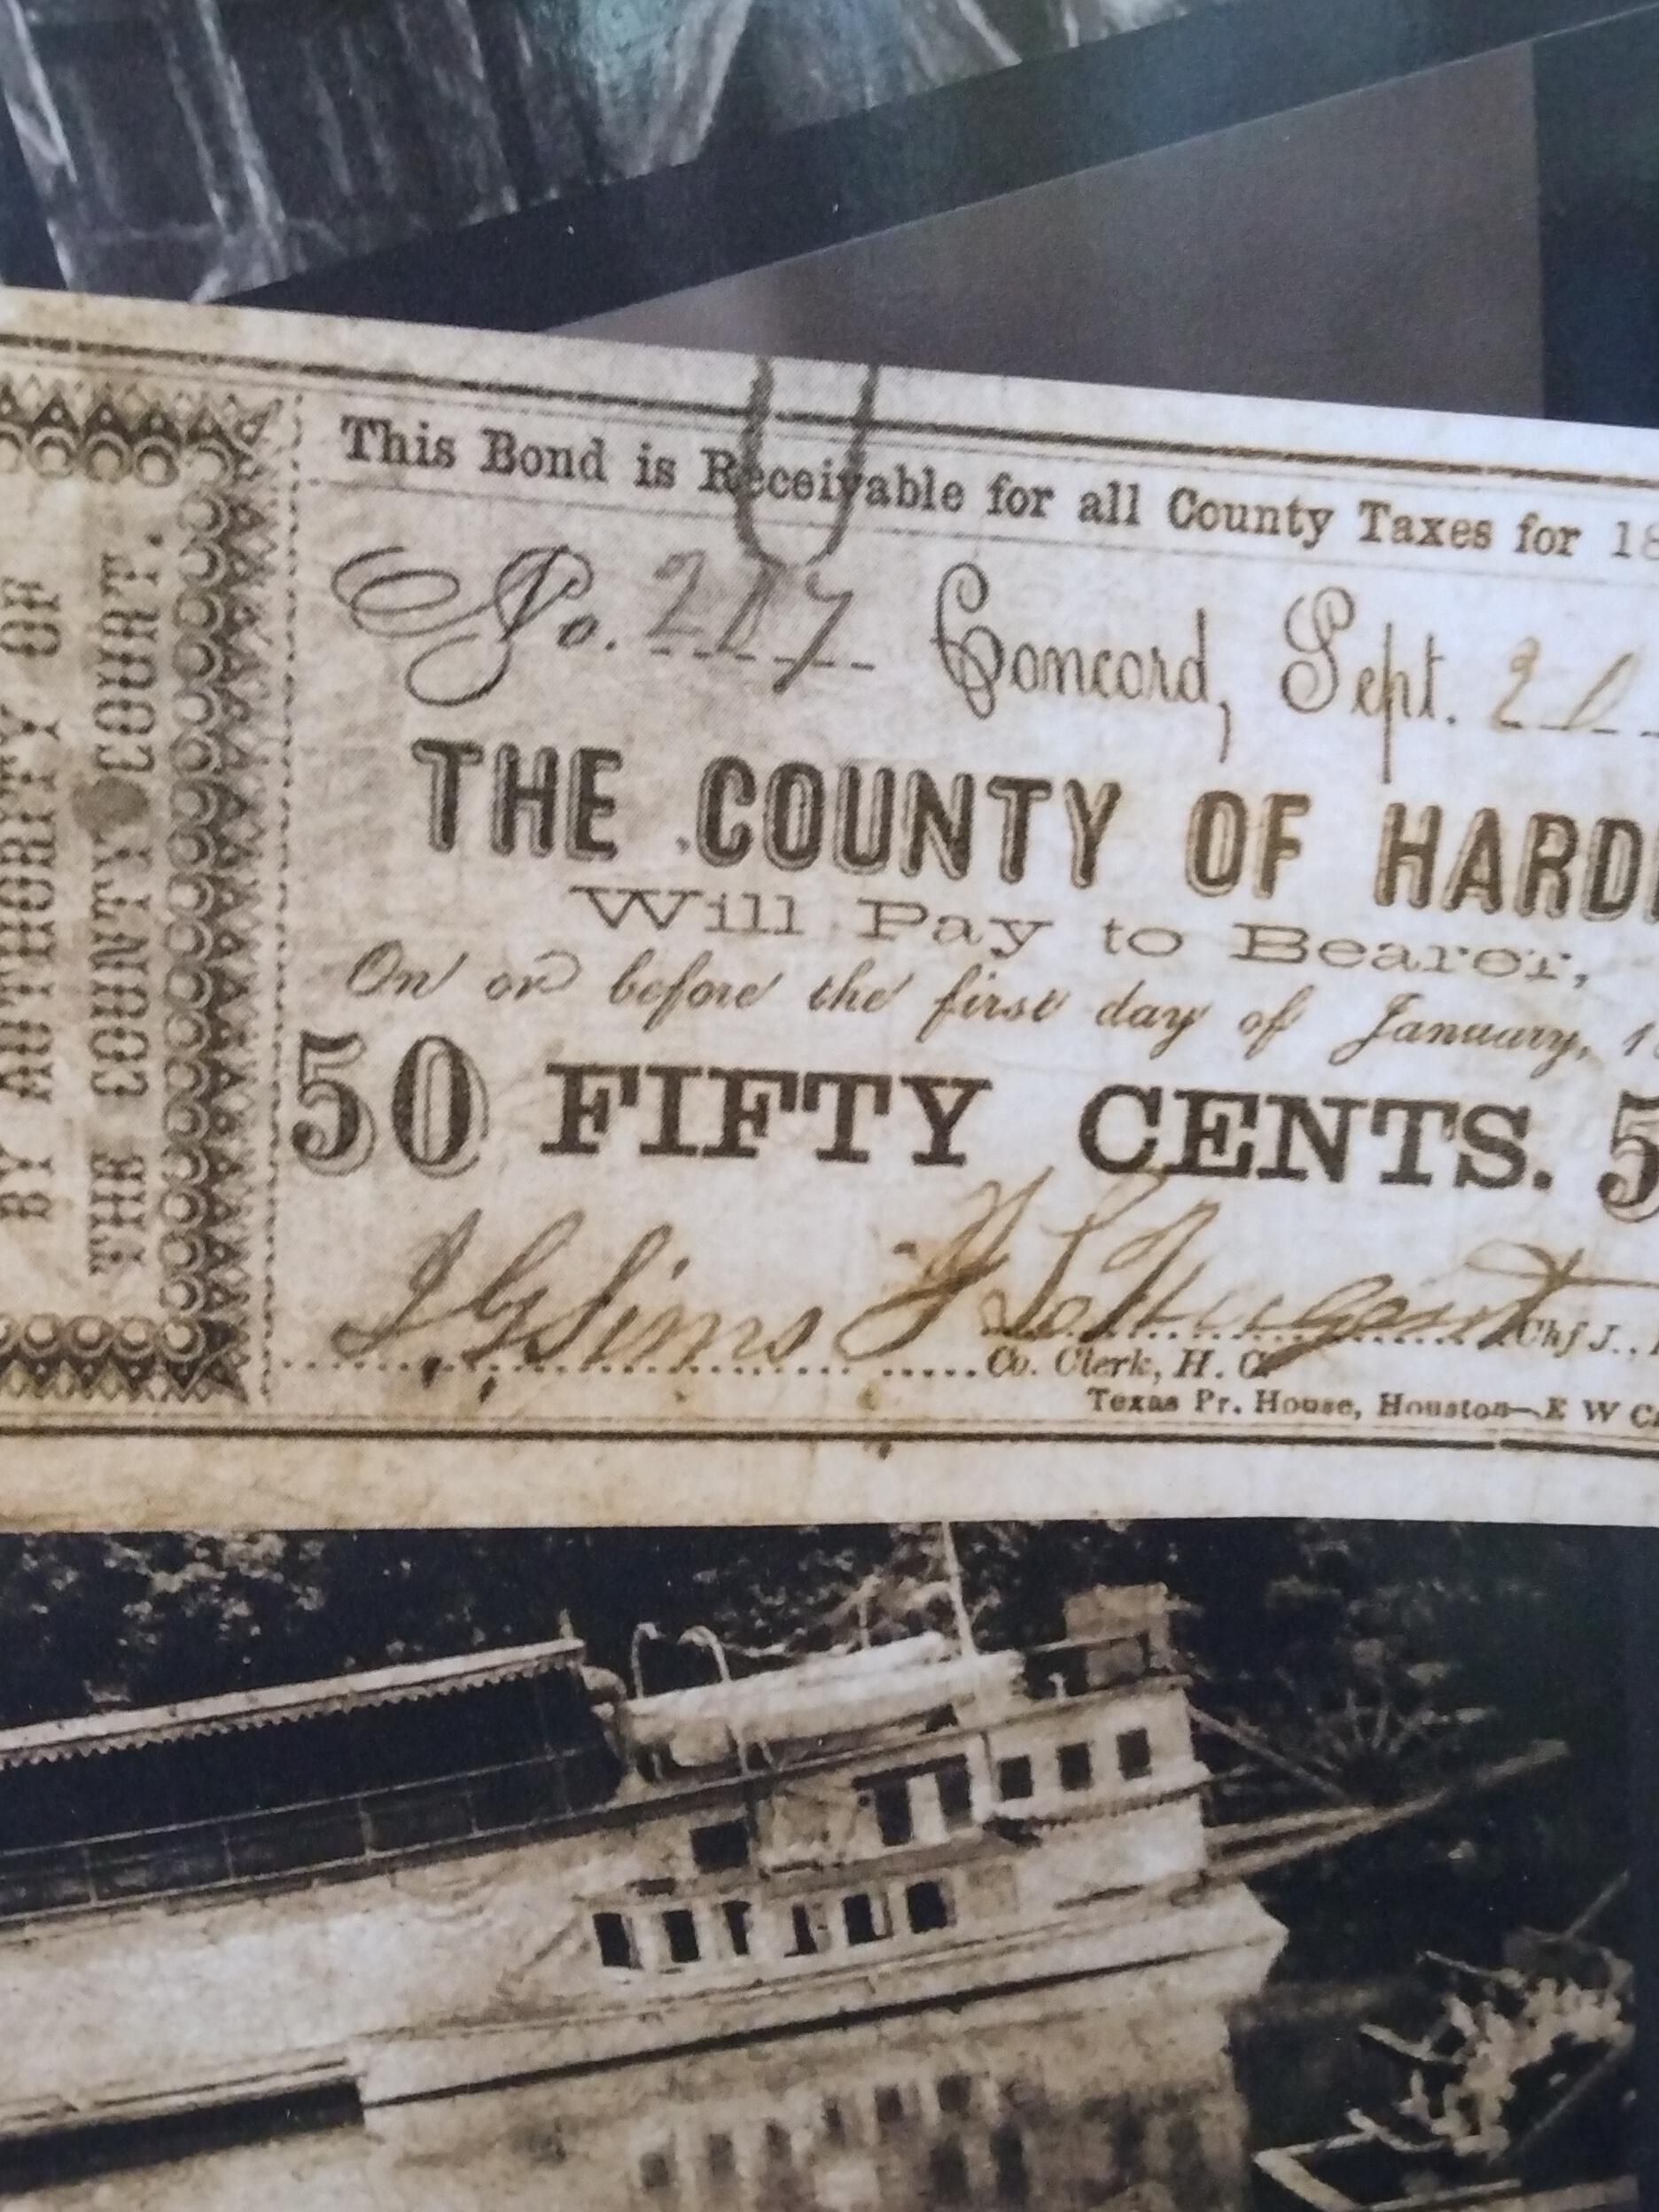 BY AUTHORITY OF
THE COUNTY COURT.
This Bond is Receivable for all County Taxes for 18
No. Concord, Sept.
THE COUNTY OF HARDI
Will Pay to Bearer,
On or before the first day of January, 1
50 FIFTY CENTS. 5
J G Sims Chf J.,
Co. Clerk, H. C.
Texas Pr. House, Houston—E W C